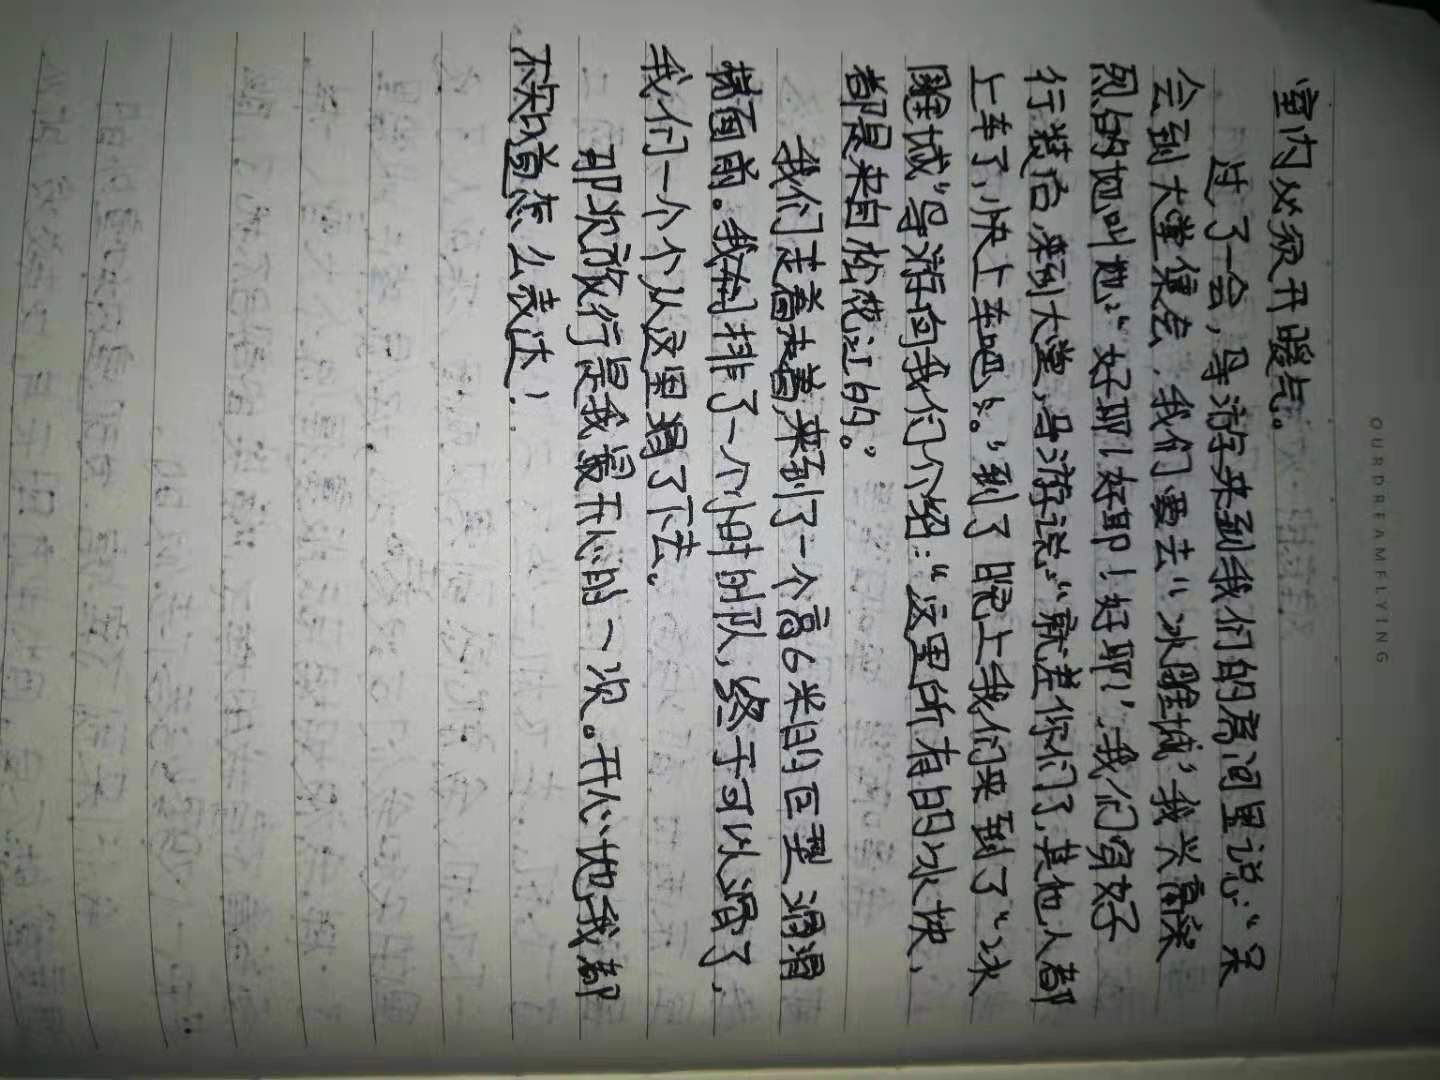 OURDREAMFLYING
室内必须开暖气。
过了一会，导游来到我们的房间里说：“呆
会到大堂集会，我们要去“冰雕城”我兴高采
烈的地叫地：“好耶！好耶！好耶！”我们穿好
行装后，来到大堂，导游说：“就差你们了，其他人都
上车了，快上车吧。”到了晚上我们来到了“冰
雕城”导游向我们介绍：“这里所有的冰块，
都是来自松花江的。”
我们走着走着，来到了一个高6米的巨型滑
梯面前。我们排了一个小时的队，终于可以滑了，
我们一个个从这里滑了下去。
那次旅行是我最开心的一次。开心地我都
不知道怎么表达！